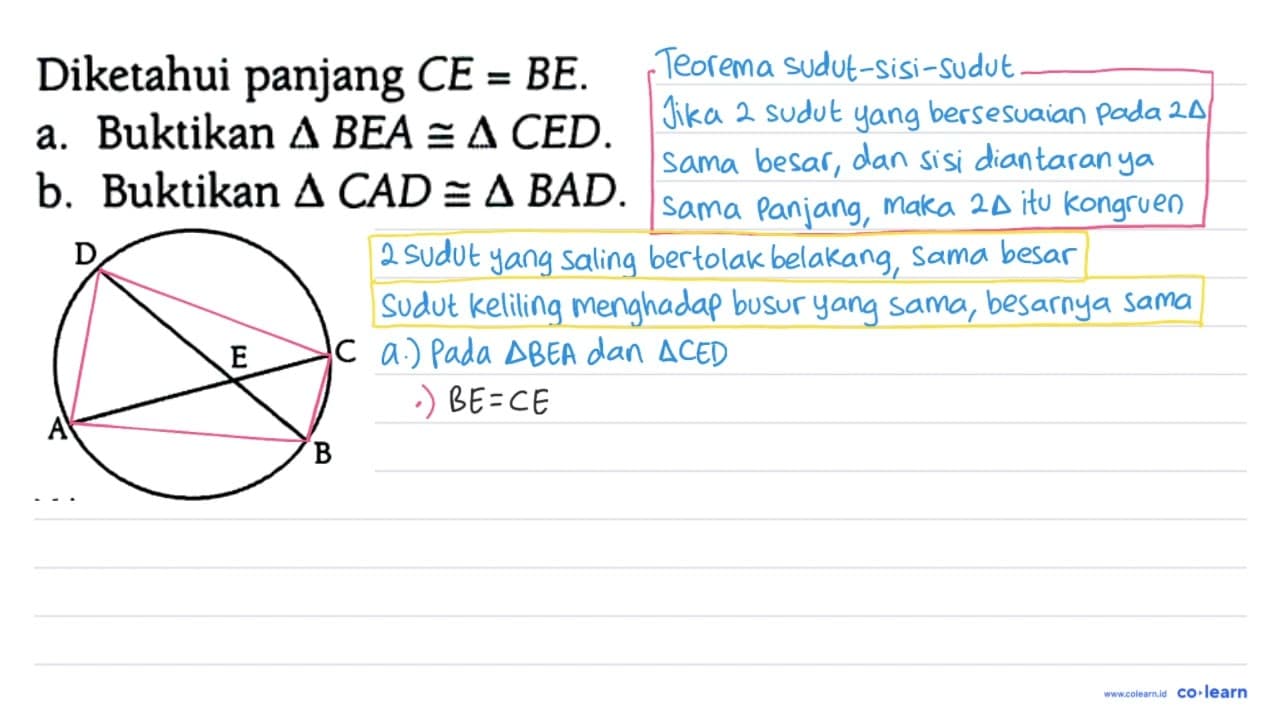 Diketahui panjang CE = BE.
a. Buktikan Δ BEA ≅ Δ CED.
b. Buktikan Δ CAD ≅ Δ BAD.
Teorema sudut-sisi-sudut
Jika 2 sudut yang bersesuaian pada 2Δ
sama besar, dan sisi diantaranya
sama panjang, maka 2Δ itu kongruen
2 sudut yang saling bertolak belakang, sama besar
Sudut keliling menghadap busur yang sama, besarnya sama
D
E
C
A
B
a.) Pada ΔBEA dan ΔCED
·) BE=CE
www.colearn.id co·learn